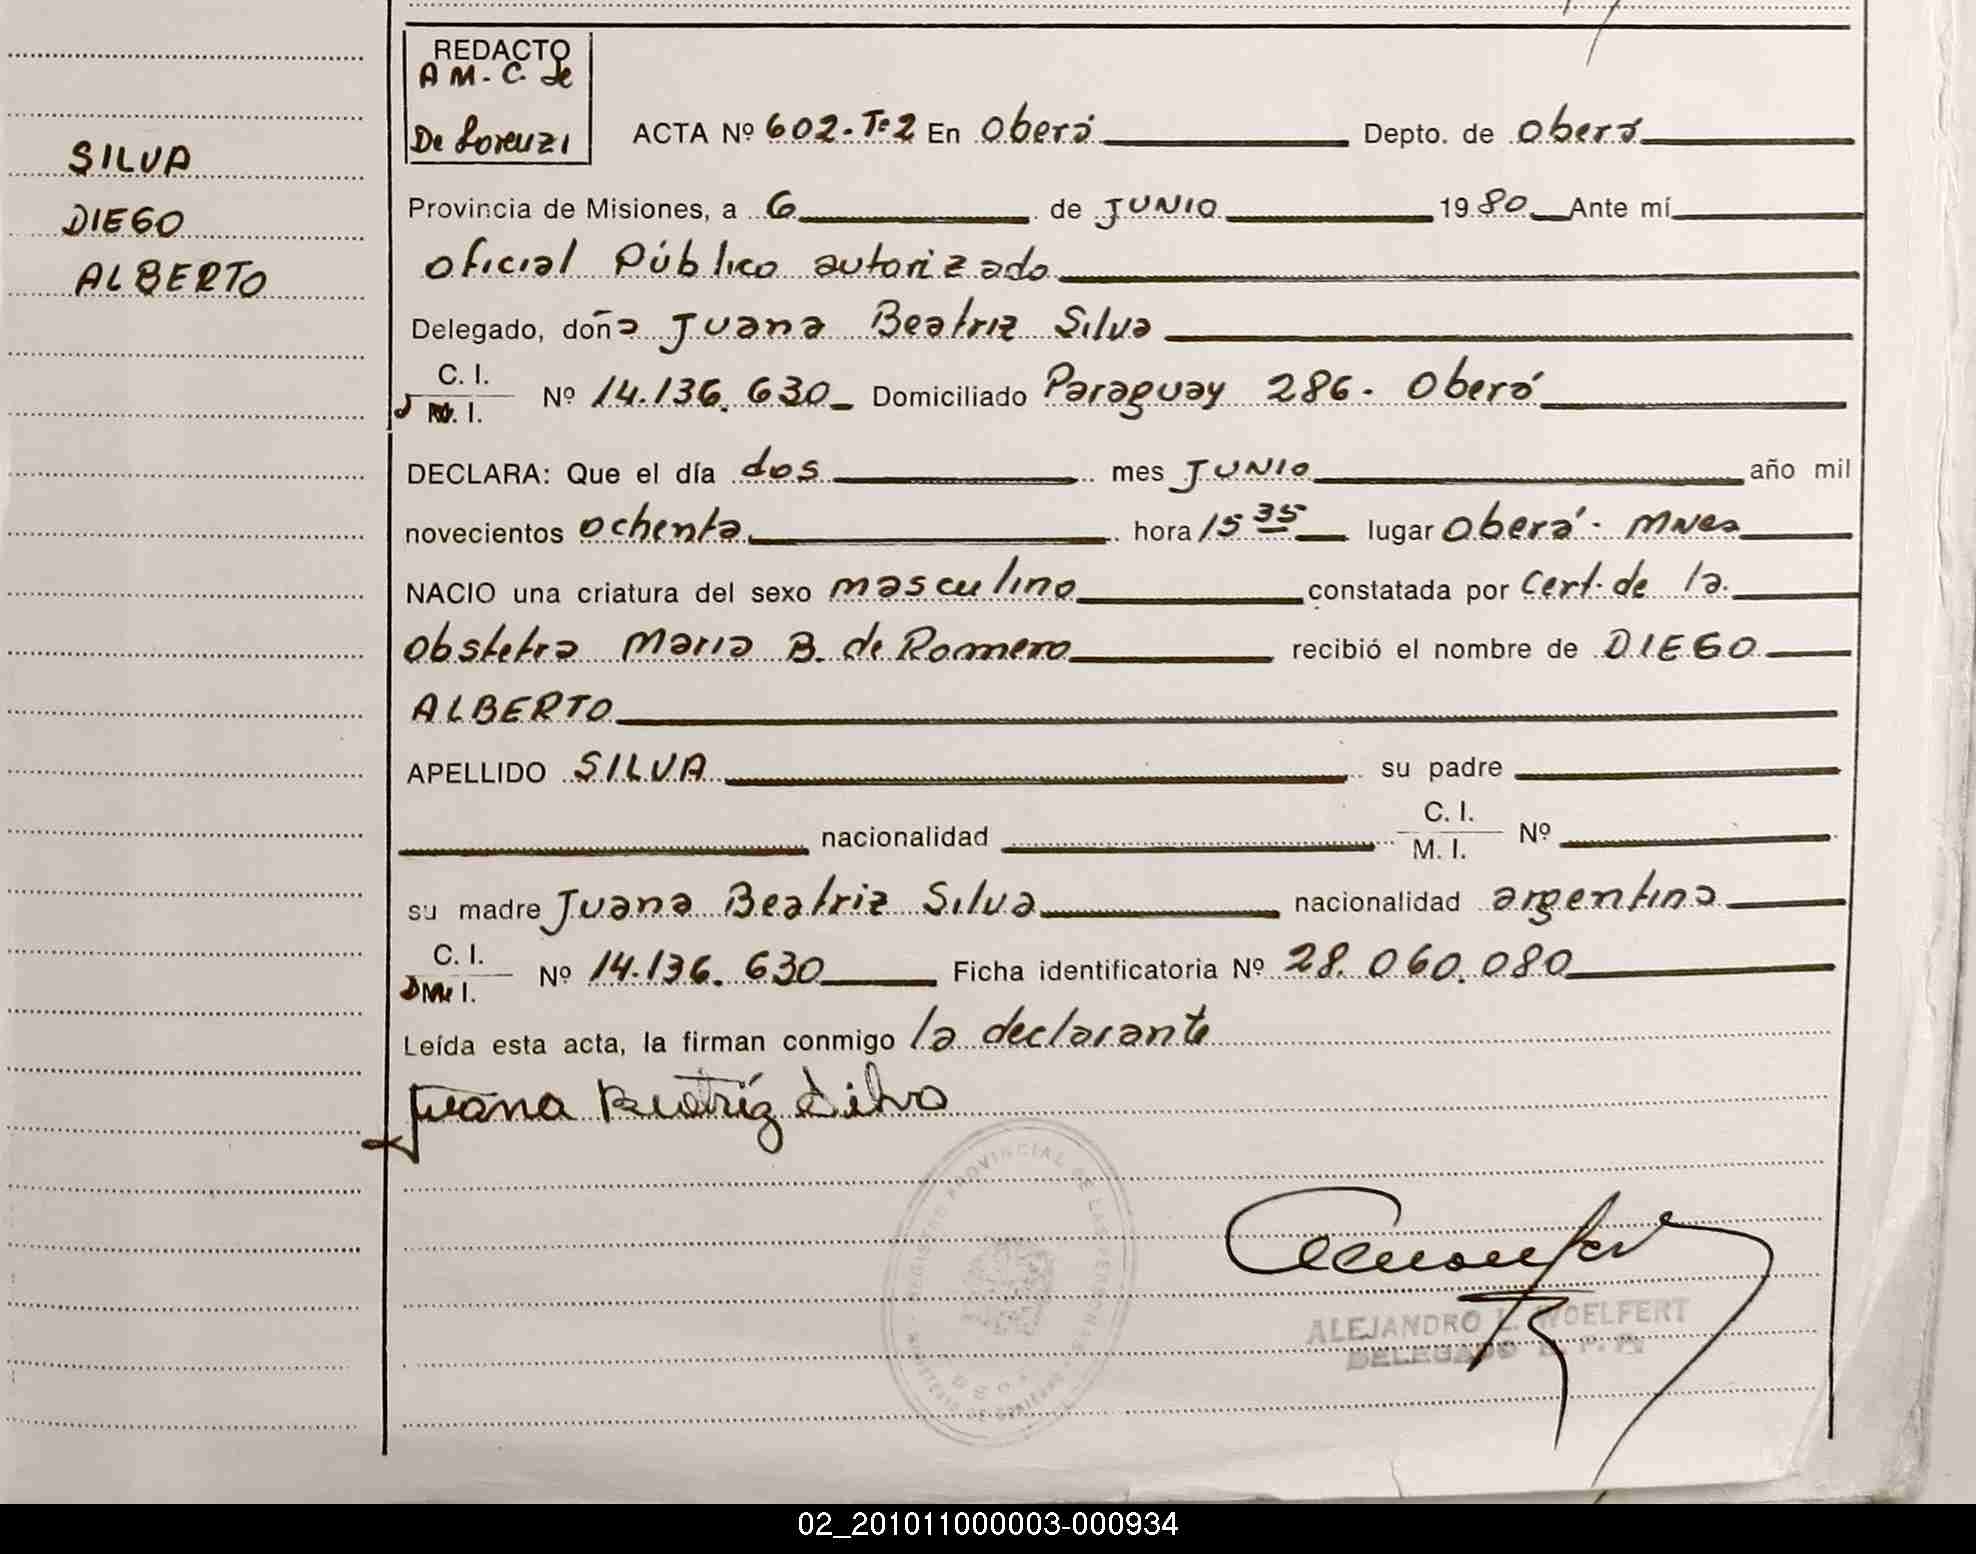 SILVA
DIEGO
ALBERTO
REDACTO
A M. C. de
De Lorenzi
ACTA Nº 602. Tº 2 En Oberá Depto. de Oberá
Provincia de Misiones, a 6 de JUNIO 1980 Ante mí
Oficial Público autorizado
Delegado, doña Juana Beatriz Silva
C. I.
I. Nº 14.136.630 Domiciliado Paraguay 286. Oberá
DECLARA: Que el día dos mes JUNIO año mil
novecientos ochenta hora 15 35 lugar Oberá. Mnes
NACIO una criatura del sexo masculino constatada por Cert. de la
Obstetra Maria B. de Romero recibió el nombre de DIEGO
ALBERTO
APELLIDO SILVA su padre
nacionalidad C. I.
M. I. Nº
su madre Juana Beatriz Silva nacionalidad argentina
C. I.
I. Nº 14.136.630 Ficha identificatoria Nº 28.060.080
Leída esta acta, la firman conmigo la declarante
Juana Beatríz Silva
REGISTRO PROVINCIAL DE LAS PERSONAS
ALEJANDRO L. WOELFERT
DELEGADO
02_201011000003-000934